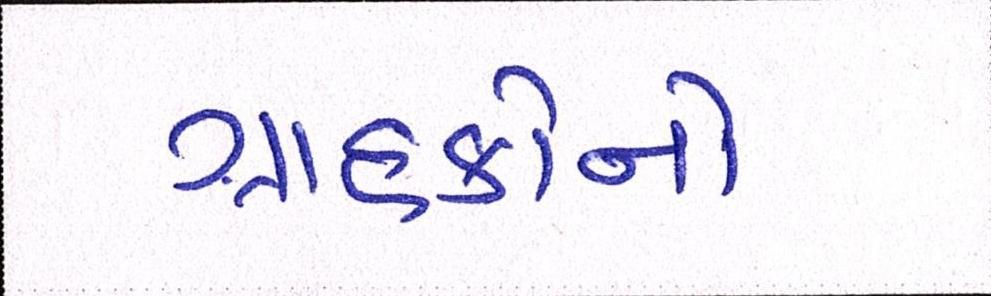 ગ્રાહકોનો